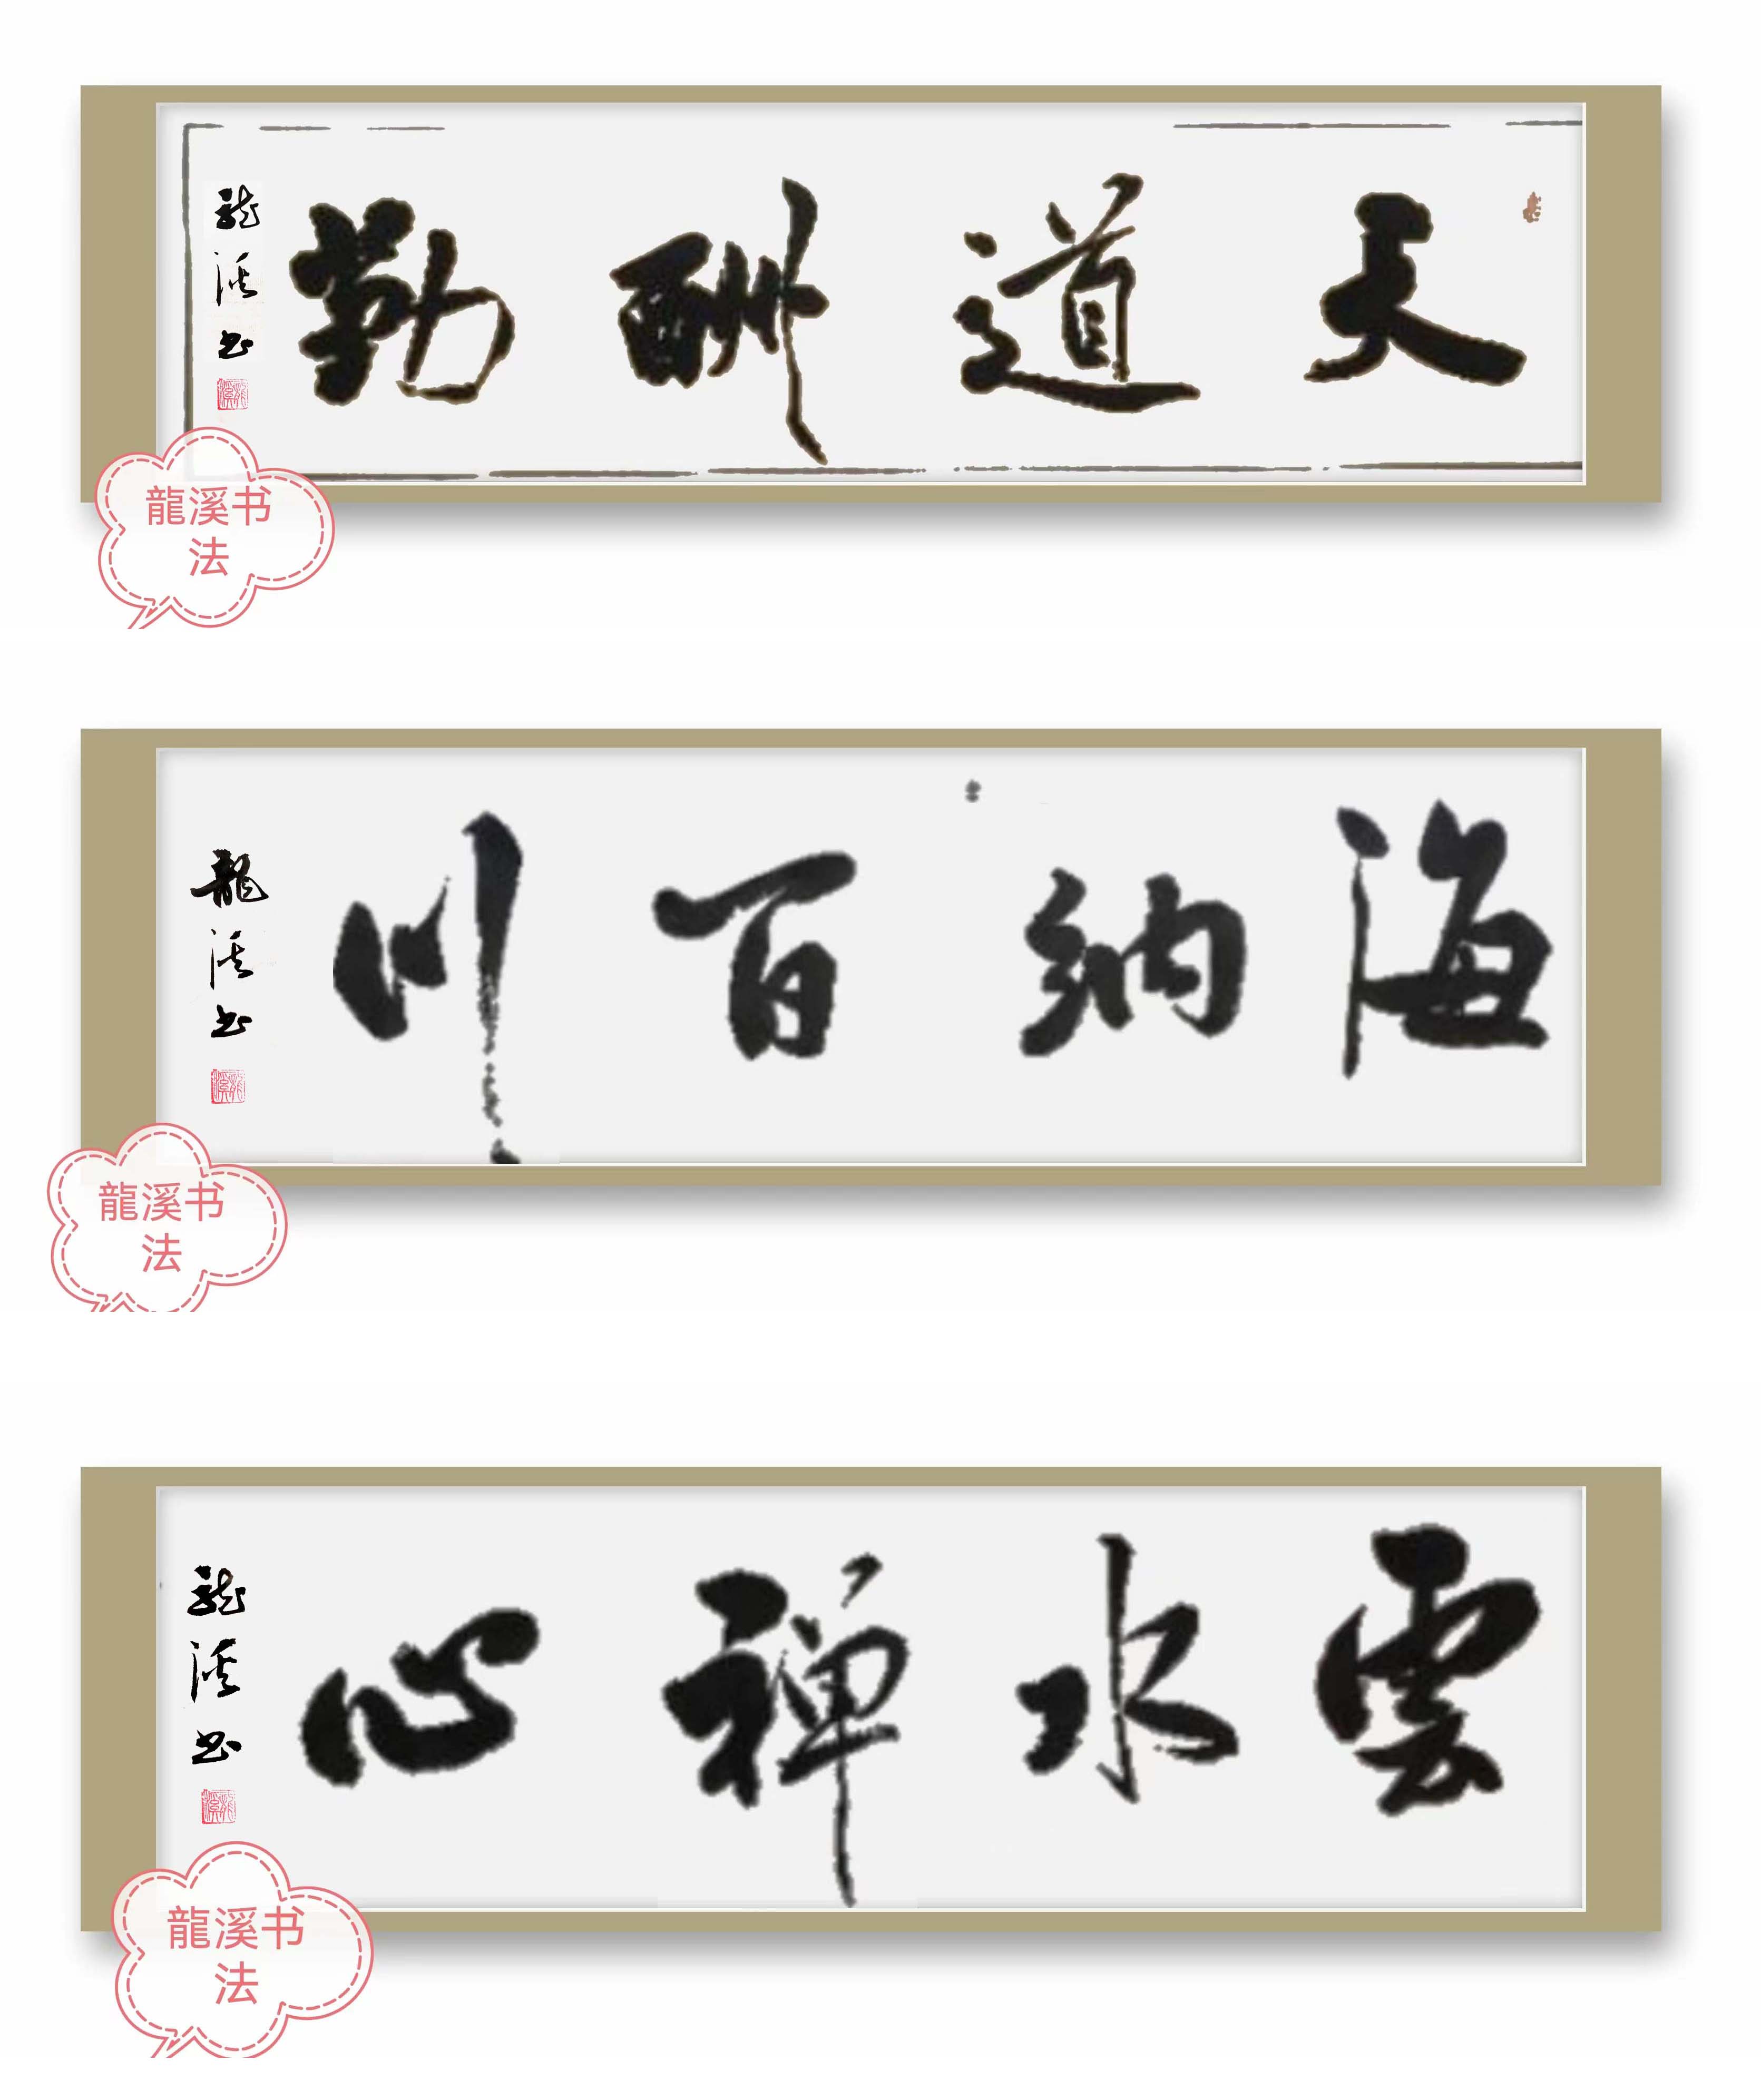 天道酬勤
龍溪书
龍溪
龍溪书
法
海纳百川
龍溪书
龍溪
龍溪书
法
雲水禅心
龍溪书
龍溪
龍溪书
法